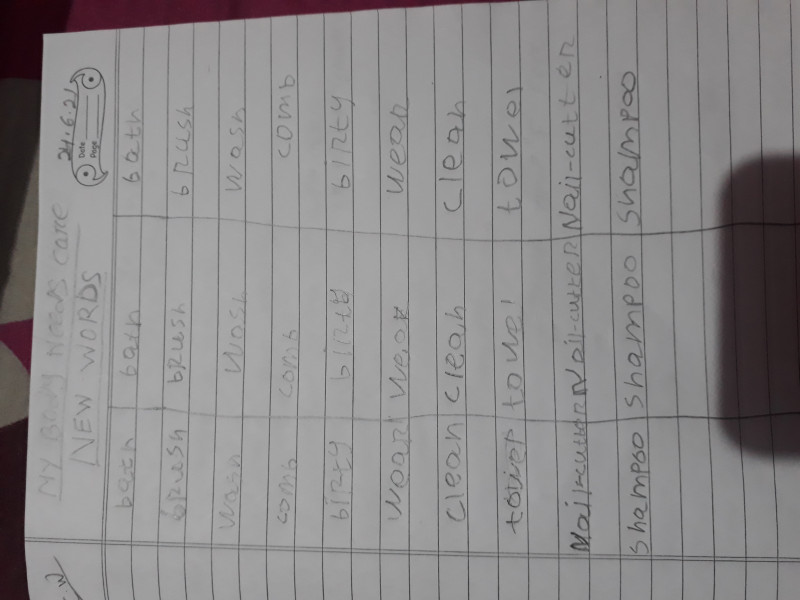 C.W
24.6.21
Date
Page
MY BODY NEEDS CARE
NEW WORDS
bath bath bath
brush brush brush
wash wash wash
comb comb comb
birty birty birty
wear wear wear
clean clean clean
towel towel towel
Nail-cutter Nail-cutter Nail-cutter
Shampoo Shampoo Shampoo